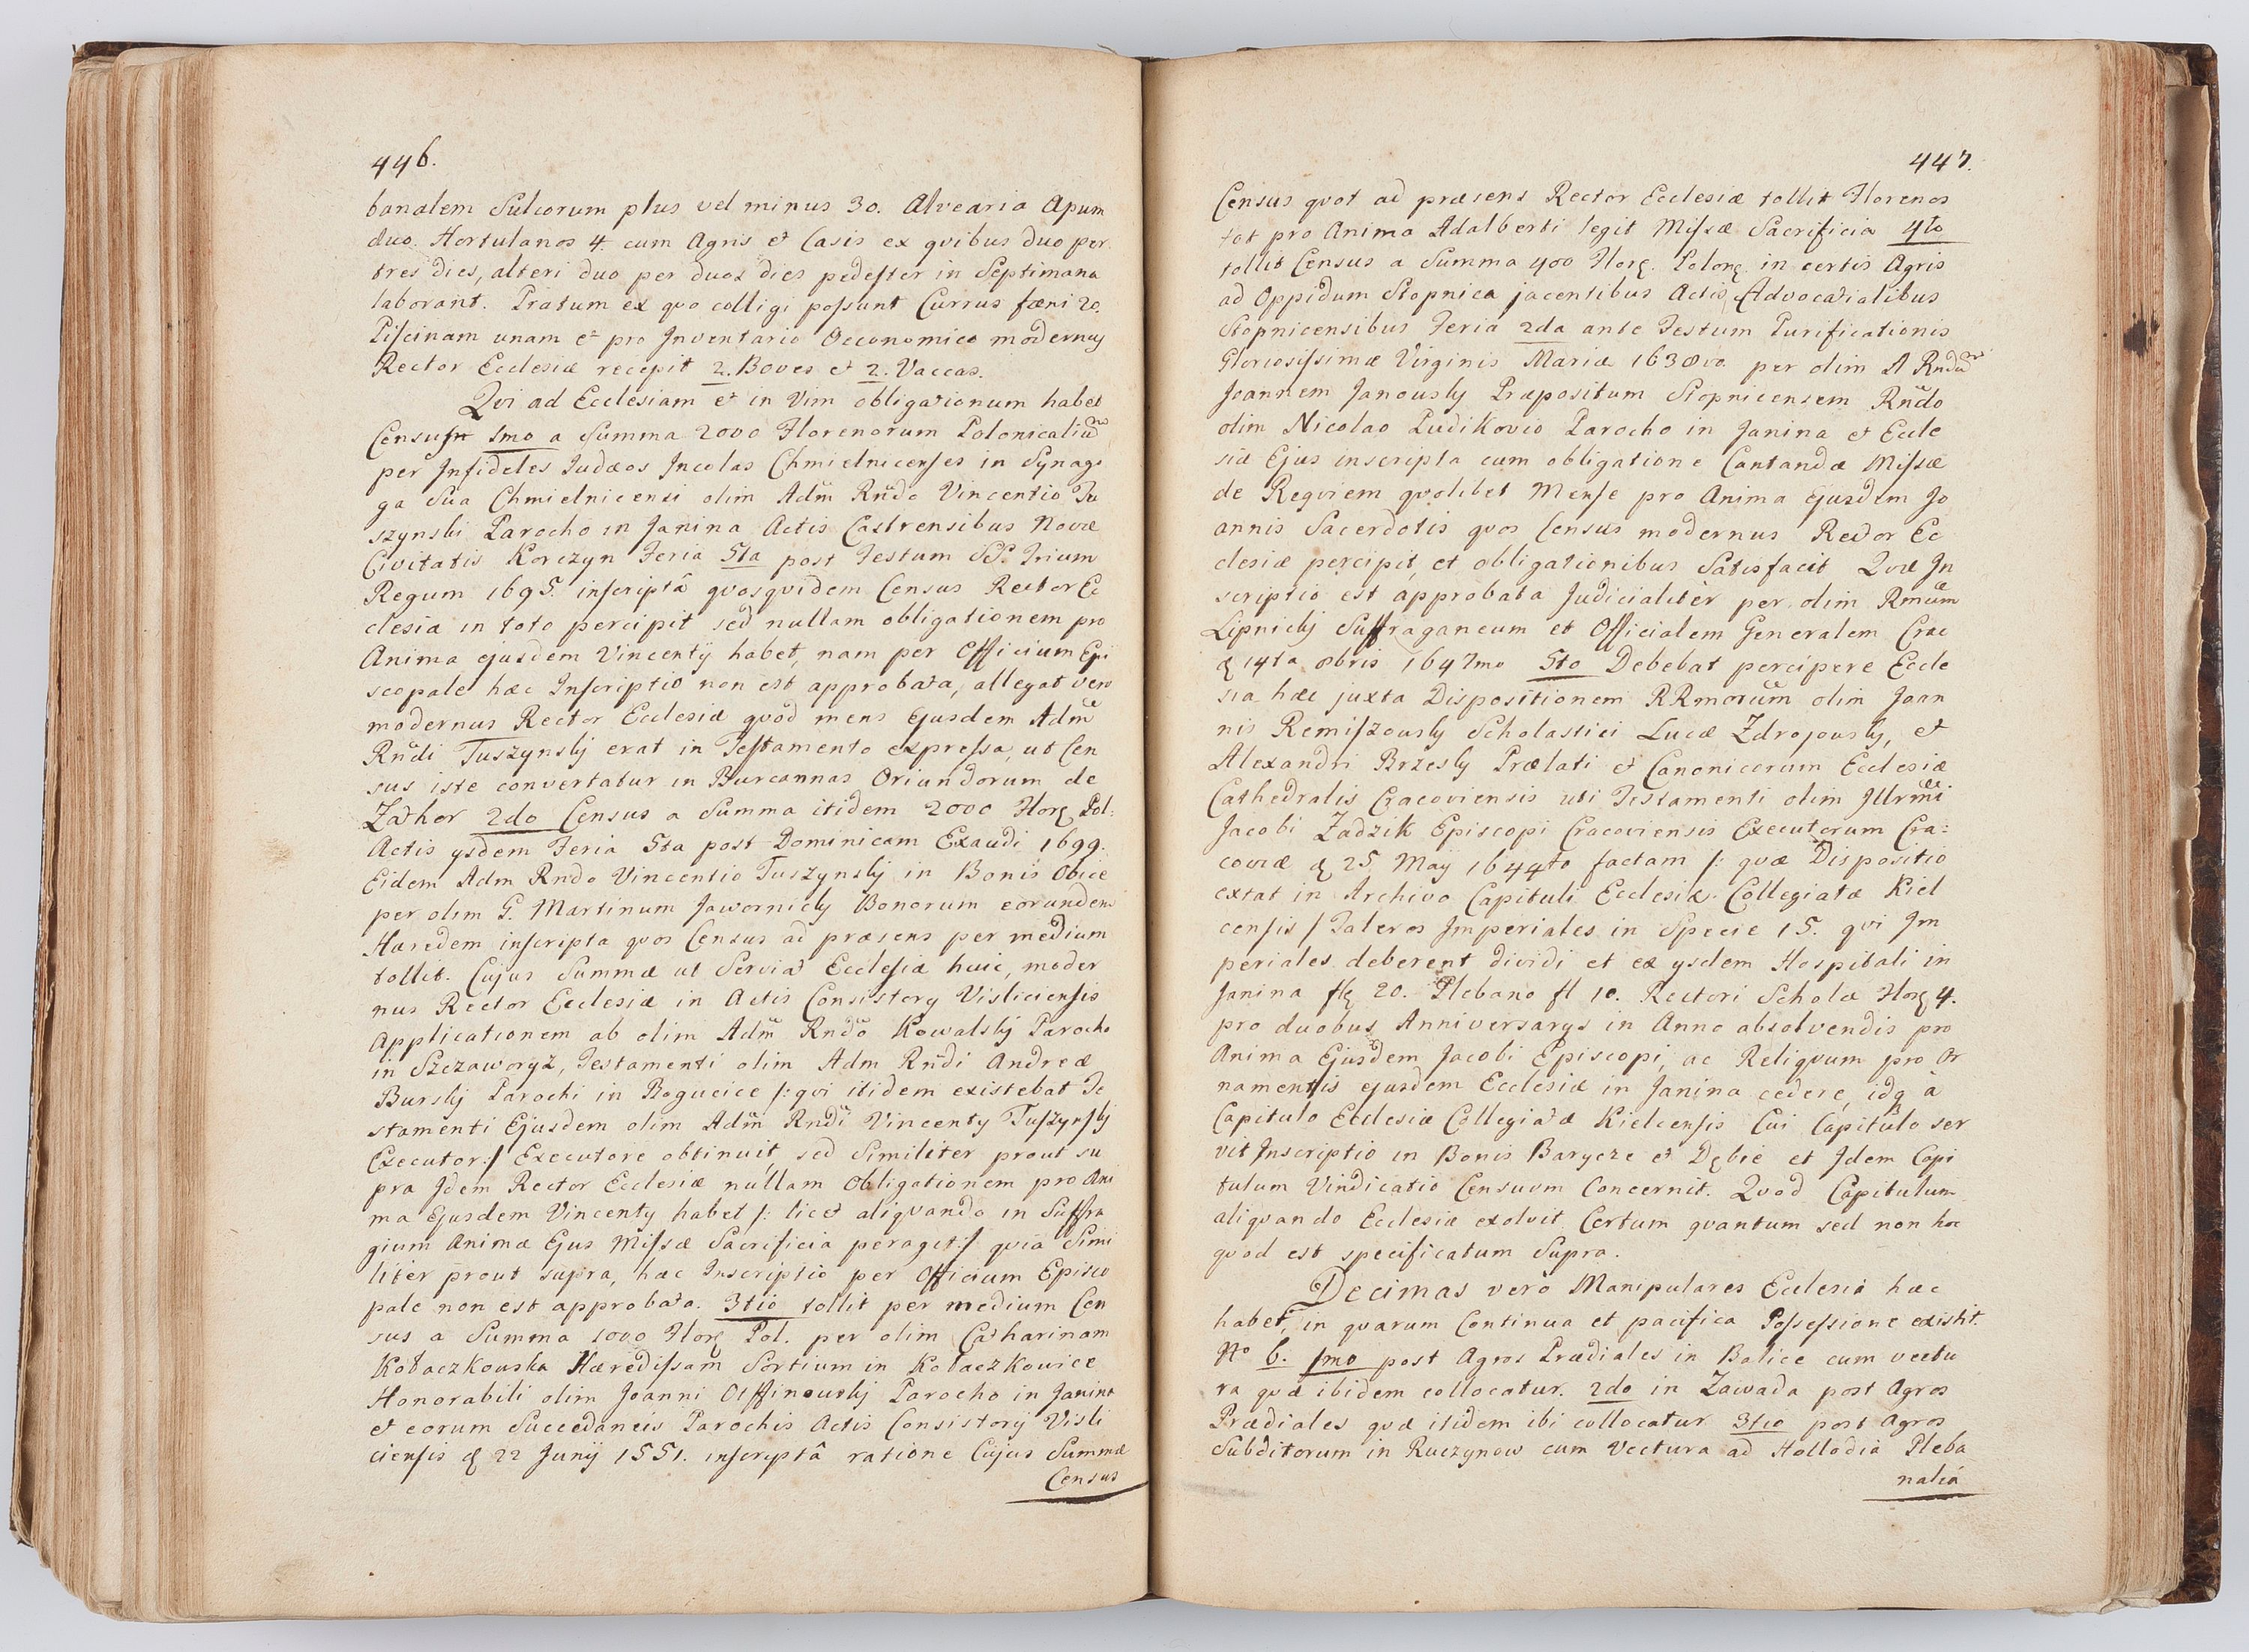 446.
banalem Sulcorum plus vel minus 30. Alvearia Apum
duo. Hortulanos 4. cum Agris et Casis ex qvibus duo per
tres dies, alteri duo per duos dies pedester in Septimana
laborant. Pratum ex qvo colligi possunt Currus fæni 20.
Piscinam unam et pro Inventario Oeconomico modernus
Rector Ecclesiæ recepit 2. Boves et 2. Vaccas.
Qvi ad Ecclesiam et in Vim obligationum habet
Censum 1mo a Summa 2000 Florenorum Polonicaliũ
per Infideles Judæos Incolas Chmielnicenses in Synago
ga Sua Chmielnicensi olim Adm̃ Rñdo Vincentio Tu
szynski Parocho in Janina Actis Castrensibus Novæ
Civitatis Korczyn Feria 5ta post Festum SS. Trium
Regum 1695. inscriptâ qvosqvidem Census Rector Ec
clesiæ in toto percipit sed nullam obligationem pro
Anima ejusdem Vincentÿ habet, nam per Officium Epi
scopale hæc Inscriptio non est approbata, allegat vero
modernus Rector Ecclesiæ qvod mens Ejusdem Adm̃
Rñdi Tuszynskj erat in Testamento expressa, ut Cen
sus iste convertatur in Burcannas Oriundorum de
Zathor 2do Census a Summa itidem 2000 Flor Pol:
Actis ysdem Feria 5ta post Dominicam Exaudi 1699.
Eidem Adm Rndo Vincentio Tuszynskj in Bonis Obice
per olim G. Martinum Jawornicky Bonorum eorundem
Hæredem inscripta qvos Census ad præsens per medium
tollit. Cujus Summæ ut Serviat Ecclesiæ huic, moder
nus Rector Ecclesiæ in Actis Consistory Visliciensis
Applicationem ab olim Adm̃ Rñdo Kowalskj Parocho
in Szczaworyż, Testamenti olim Adm Rñdi Andreæ
Burskj Parochi in Bogucice /: qvi itidem existebat Te
stamenti Ejusdem olim Adm̃ Rñdi Vincenty Tuszynskj
Executor :/ Executore obtinuit, sed Similiter prout su
pra Idem Rector Ecclesiæ nullam Obligationem pro Ani
ma Ejusdem Vincenty habet /: licet aliqvando in Suffra
gium Animæ Ejus Missæ Sacrificia peraget :/ qvia Simi
liter prout supra, hæc Inscriptio per Officium Episco
pale non est approbata. 3tio tollit per medium Cen
sus a Summa 1000 Flor Pol. per olim Catharinam
Kołaczkowska Hæredissam Sortium in Kołaczkowice
Honorabili olim Joanni Ossinowskj Parocho in Janina
et eorum Succedaneis Parochis Actis Consistorij Visli
ciensis d 22 Junij 1551. inscriptâ ratione Cujus Summæ
Census
447.
Census qvot ad præsens Rector Ecclesiæ tollit Florenos
tot pro Anima Adalberti legit Missæ Sacrificia 4to
tollit Census a Summa 400 Flor. Polon. in certis Agris
ad Oppidum Stopnica jacentibus Actis Advocatialibus
Stopnicensibus Feria 2da ante Festum Purificationis
Gloriosissimæ Virginis Mariæ 1638vo. per olim A Rndũ
Joannem Janousky Præpositum Stopnicensem Rñdo
olim Nicolao Pudikovio Parocho in Janina et Eccle
siæ Ejus inscripta cum obligatione Cantandæ Missæ
de Reqviem qvolibet Mense pro Anima Ejusdem Jo
annis Sacerdotis qvos Census modernus Rector Ec
clesiæ percipit, et obligationibus Satisfacit Qvæ In
scriptio est approbata Judicialiter per olim Rmũm
Lipnickj Suffraganeum et Officialem Generalem Crac
d 14ta 8bris 1647mo 5to Debebat percipere Eccle
sia hæc juxta Dispositionem RRmorũm olim Joan
nis Remiszousky Scholastici Lucæ Zdrojousky, et
Alexandri Brzesky Prælati et Canonicorum Ecclesiæ
Cathedralis Cracoviensis uti Testamenti olim Illrm̃i
Jacobi Zadzik Episcopi Cracoviensis Executorum Cra:
coviæ d 25 Maÿ 1644to factam /: qvæ Dispositio
extat in Archivo Capituli Ecclesiæ Collegiatæ Kiel
censis / Taleros Imperiales in Specie 15. qvi Im
periales deberent dividi et ex ysdem Hospitali in
Janina fl 20. Plebano fl 10. Rectori Scholæ Flor 4.
pro duobus Anniversarys in Anno absolvendis pro
Anima Ejusdem Jacobi Episcopi, ac Reliqvum pro Or
namentis ejusdem Ecclesiæ in Janina cedere, idq à
Capitulo Ecclesiæ Collegiatæ Kielcensis Cui Capitulo ser
vit Inscriptio in Bonis Barycze et Dębie et Idem Capi
tulum Vindicatio Censuum Concernit. Qvod Capitulum
aliqvando Ecclesiæ exolvit Certum qvantum sed non hoc
qvod est specificatum Supra.
Decimas verò Manipulares Ecclesia hæc
habet, in qvarum Continua et pacifica Possessione existit.
No 6. 1mo post Agros Prædiales in Balice cum vectu
ra qvæ ibidem collocatur. 2do in Zawada post Agros
Prædiales qvæ itidem ibi collocatur 3tio post Agros
Subditorum in Ruczynow cum Vectura ad Hollodia Pleba
nalia